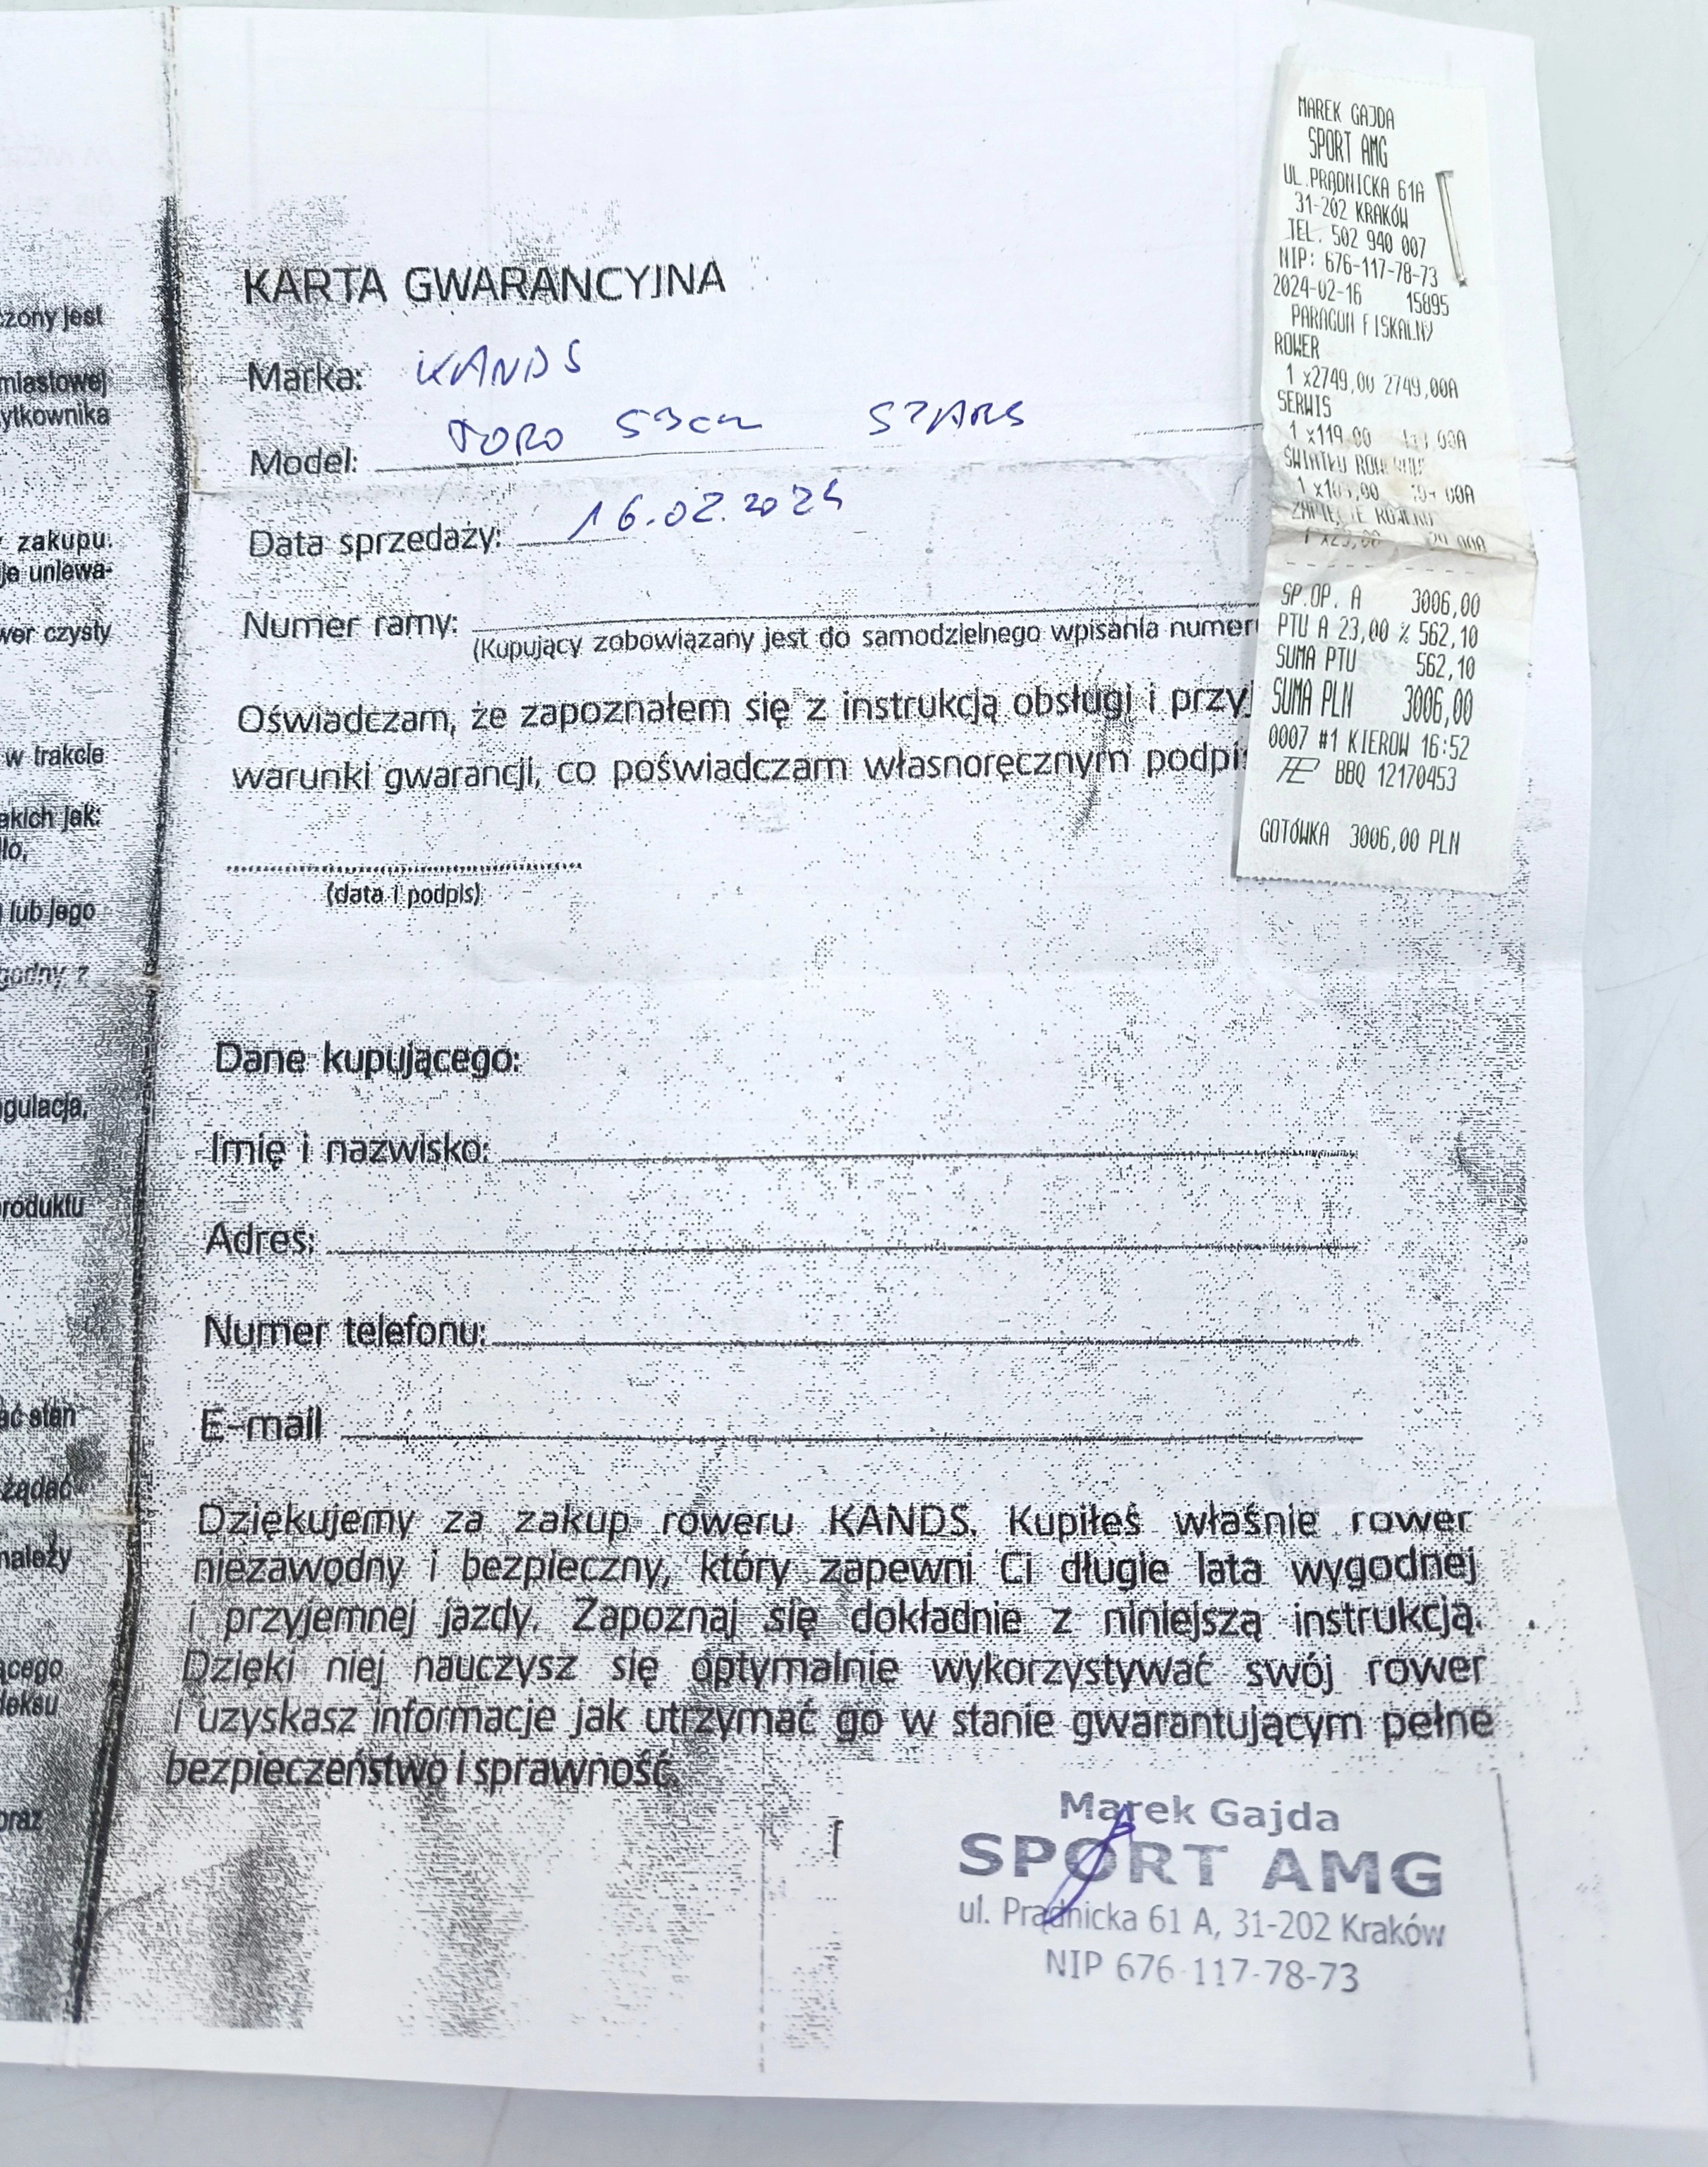 zony jest
miastowej
ytkownika
zakupu.
je uniewa-
wer czysty
w trakcie
akich jak:
lub jego
godny z
gulacja,
roduktu
ać stan
żądać
należy
ącego
deksu
oraz
KARTA GWARANCYJNA
Marka: KANDS
Model: TORO 53cm SZARS
Data sprzedaży: 16.02.2024
Numer ramy:
(Kupujący zobowiązany jest do samodzielnego wpisania numer
Oświadczam, że zapoznałem się z instrukcją obsługi i przyj
warunki gwarancji, co poświadczam własnoręcznym podpis
(data i podpis)
Dane kupującego:
Imię i nazwisko:
Adres:
Numer telefonu:
E-mail
Dziękujemy za zakup roweru KANDS. Kupiłeś właśnie rower
niezawodny i bezpieczny, który zapewni Ci długie lata wygodnej
i przyjemnej jazdy. Zapoznaj się dokładnie z niniejszą instrukcją.
Dzięki niej nauczysz się optymalnie wykorzystywać swój rower
i uzyskasz informacje jak utrzymać go w stanie gwarantującym pełne
bezpieczeństwo i sprawność.
Marek Gajda
SPORT AMG
ul. Prądnicka 61 A, 31-202 Kraków
NIP 676-117-78-73
MAREK GAJDA
SPORT AMG
UL.PRĄDNICKA 61A
31-202 KRAKÓW
TEL. 502 940 007
NIP: 676-117-78-73
2024-02-16 15895
PARAGON FISKALNY
ROWER
1 x2749,00 2749,00A
SERWIS
1 x119,00
1
SP.OP. A 3006,00
PTU A 23,00 % 562,10
SUMA PTU 562,10
SUMA PLN 3006,00
0007 #1 KIEROW 16:52
BBQ 12170453
GOTÓWKA 3006,00 PLN